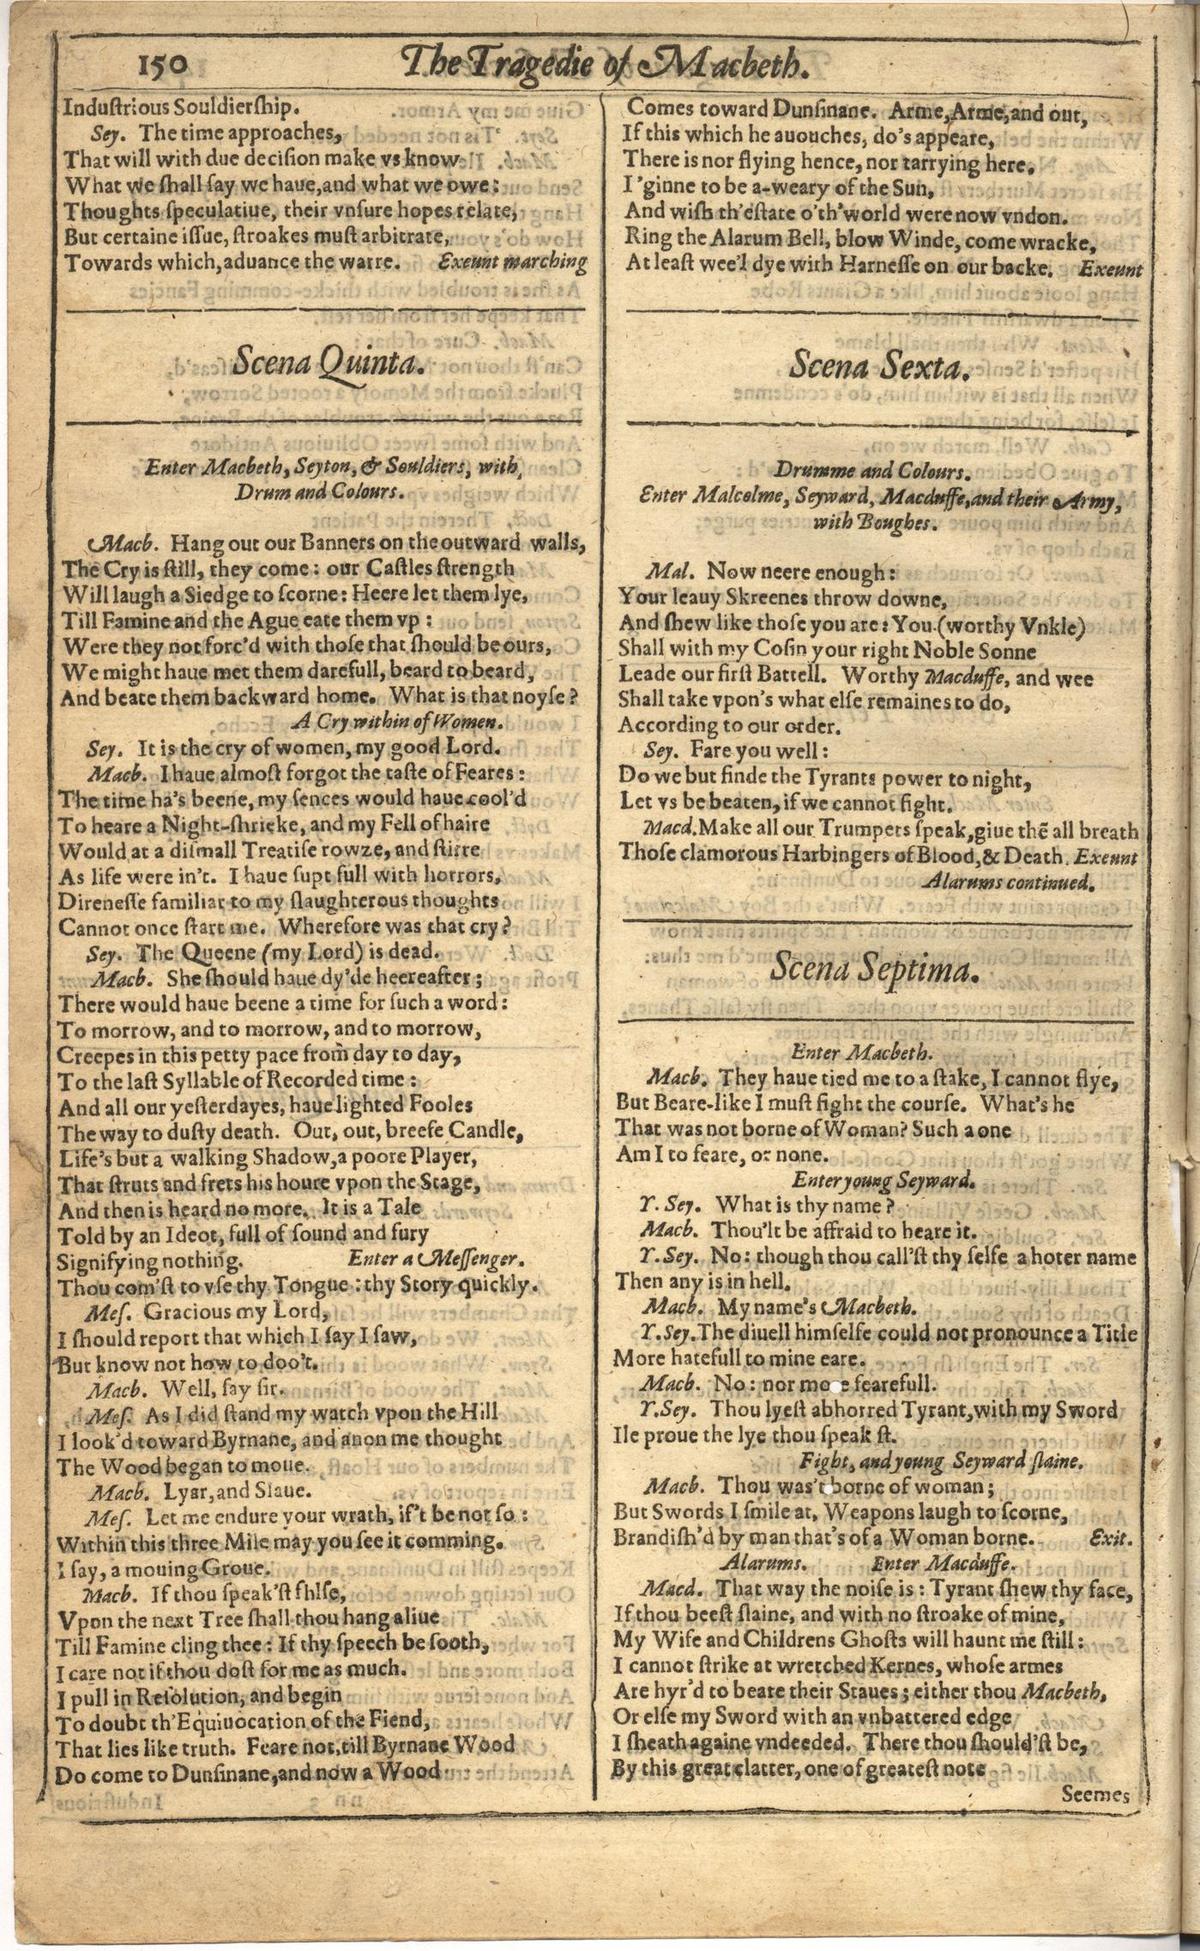 150
The Tragedie of Macbeth.
Industrious Souldiership.
Sey. The time approaches,
That will with due decision make vs know
What we shall say we haue,and what we owe:
Thoughts speculatiue, their vnsure hopes relate,
But certaine issue, stroakes must arbitrate,
Towards which,aduance the warre. Exeunt marching
Scena Quinta.
Enter Macbeth, Seyton, & Souldiers, with,
Drum and Colours.
Macb. Hang out our Banners on the outward walls,
The Cry is still, they come: our Castles strength
Will laugh a Siedge to scorne: Heere let them lye,
Till Famine and the Ague eate them vp:
Were they not forc'd with those that should be ours,
We might haue met them darefull, beard to beard,
And beate them backward home. What is that noyse?
A Cry within of Women.
Sey. It is the cry of women, my good Lord.
Macb. I haue almost forgot the taste of Feares:
The time ha's beene, my sences would haue cool'd
To heare a Night-shrieke, and my Fell of haire
Would at a dismall Treatise rowze, and stirre
As life were in't. I haue supt full with horrors,
Direnesse familiar to my slaughterous thoughts
Cannot once start me. Wherefore was that cry?
Sey. The Queene (my Lord) is dead.
Macb. She should haue dy'de heereafter;
There would haue beene a time for such a word:
To morrow, and to morrow, and to morrow,
Creepes in this petty pace from day to day,
To the last Syllable of Recorded time:
And all our yesterdayes, haue lighted Fooles
The way to dusty death. Out, out, breefe Candle,
Life's but a walking Shadow,a poore Player,
That struts and frets his houre vpon the Stage,
And then is heard no more. It is a Tale
Told by an Ideot, full of sound and fury
Signifying nothing. Enter a Messenger.
Thou com'st to vse thy Tongue: thy Story quickly.
Mes. Gracious my Lord,
I should report that which I say I saw,
But know not how to doo't.
Macb. Well, say sir.
Mes. As I did stand my watch vpon the Hill
I look'd toward Byrnane, and anon me thought
The Wood began to moue.
Macb. Lyar,and Slaue.
Mes. Let me endure your wrath, if't be not so:
Within this three Mile may you see it comming.
I say, a mouing Groue.
Macb. If thou speak'st fhlse,
Vpon the next Tree shall thou hang aliue
Till Famine cling thee: If thy speech be sooth,
I care not if thou dost for me as much.
I pull in Resolution, and begin
To doubt th'Equiuocation of the Fiend,
That lies like truth. Feare not,till Byrnane Wood
Do come to Dunsinane,and now a Wood
Comes toward Dunsinane. Arme,Arme,and out,
If this which he auouches, do's appeare,
There is nor flying hence, nor tarrying here.
I 'ginne to be a-weary of the Sun,
And wish th'estate o'th'world were now vndon.
Ring the Alarum Bell, blow Winde, come wracke,
At least wee'l dye with Harnesse on our backe. Exeunt
Scena Sexta.
Drumme and Colours.
Enter Malcolme, Seyward, Macduffe,and their Army,
with Boughes.
Mal. Now neere enough:
Your leauy Skreenes throw downe,
And shew like those you are: You (worthy Vnkle)
Shall with my Cosin your right Noble Sonne
Leade our first Battell. Worthy Macduffe, and wee
Shall take vpon's what else remaines to do,
According to our order.
Sey. Fare you well:
Do we but finde the Tyrants power to night,
Let vs be beaten, if we cannot fight.
Macd.Make all our Trumpets speak,giue thē all breath
Those clamorous Harbingers of Blood,& Death. Exeunt
Alarums continued.
Scena Septima.
Enter Macbeth.
Macb. They haue tied me to a stake, I cannot flye,
But Beare-like I must fight the course. What's he
That was not borne of Woman? Such a one
Am I to feare, or none.
Enter young Seyward.
Y. Sey. What is thy name?
Macb. Thou'lt be affraid to heare it.
Y.Sey. No: though thou call'st thy selfe a hoter name
Then any is in hell.
Macb. My name's Macbeth.
Y.Sey.The diuell himselfe could not pronounce a Title
More hatefull to mine eare.
Macb. No: nor more fearefull.
Y.Sey. Thou lyest abhorred Tyrant,with my Sword
Ile proue the lye thou speak'st.
Fight, and young Seyward slaine.
Macb. Thou was't borne of woman;
But Swords I smile at, Weapons laugh to scorne,
Brandish'd by man that's of a Woman borne. Exit.
Alarums. Enter Macduffe.
Macd. That way the noise is: Tyrant shew thy face,
If thou beest slaine, and with no stroake of mine,
My Wife and Childrens Ghosts will haunt me still:
I cannot strike at wretched Kernes, whose armes
Are hyr'd to beare their Staues; either thou Macbeth,
Or else my Sword with an vnbattered edge
I sheath againe vndeeded. There thou should'st be,
By this great clatter, one of greatest note
Seemes